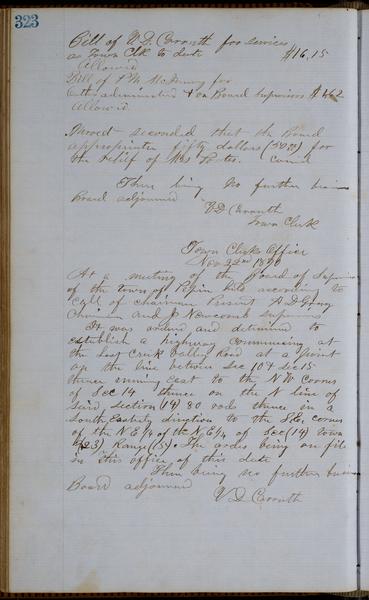 323
Bill of V. D. Carruth for services
as Town Clk to date $16,15
Allowed
Bill of P. M. for
administered + on Board Supervisors $
Allowed
Moved seconded that the Board
appropriate fifty dollars (50.00) for
the relief of Mrs Carried
There being no further
Board adjourned
V. D. Carruth
Town Clerk
Town Clerks Office
Nov
At a meeting of the Board of Supervisors
of the town of Pepin held according to
Call of chairman Present A. D. Gray
Chairman and J Newcomb supervisors
It was ordered and determined to
establish a highway commencing at
the Lost Creek Valley Road at a point
on the line between Sec 10 + Sec 15
thence running East to the N.W. Corner
of Sec 14 thence on the N line of
said section (14) 80 rods thence in a
South Easterly direction to the S.E. corner
of the N.E. 1/4 of the N.E. 1/4 of Sec (14) town
(23) Range (15). The order being on file
in this office of this date
There being no further
Board adjourned
V. D. Carruth